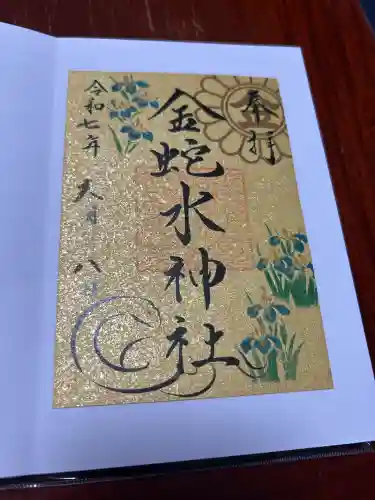 奉拝
金蛇水神社
令和七年 六月 八日